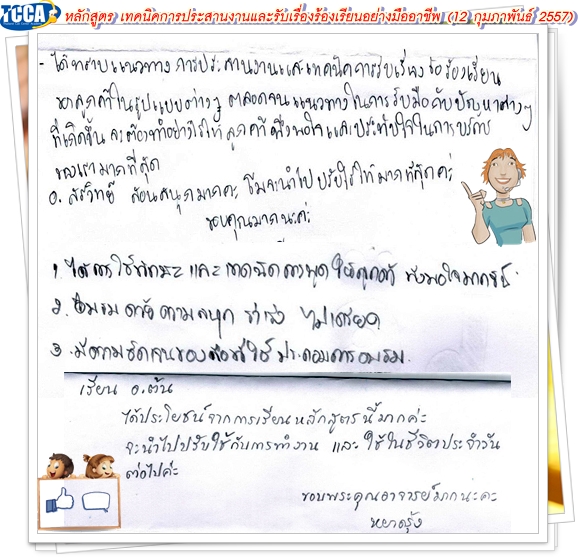 TCCA
หลักสูตร เทคนิคการประสานงานและรับเรื่องร้องเรียนอย่างมืออาชีพ (12 กุมภาพันธ์ 2557)
- ได้ทราบแนวทาง การประสานงานและเทคนิคการรับเรื่องร้องเรียน
ของลูกค้าในรูปแบบต่างๆ ตลอดจนแนวทางในการรับมือกับปัญหาต่างๆ
ที่เกิดขึ้น จะต้องทำอย่างไรให้ ลูกค้าพึงพอใจ และประทับใจในการบริการ
ของเรามากที่สุด
อ. สอนสนุกมากค่ะ จะนำไปปรับใช้ให้มากที่สุดค่ะ
ขอบคุณมากนะค่ะ
1. ได้การใช้ทักษะ และ เทคนิคการพูด ให้ลูกค้า พึงพอใจมากขึ้น
2. อบรมด้วยความสนุก ร่าเริง ไม่เครียด
3. มีความชัดเจนของ ประกอบการอบรม
เรียน อ.ต้น
ได้ประโยชน์จากการเรียนหลักสูตรนี้มากค่ะ
จะนำไปปรับใช้กับการทำงาน และ ใช้ในชีวิตประจำวัน
ต่อไปค่ะ
ขอบพระคุณอาจารย์มากนะคะ
หยาดรุ้ง